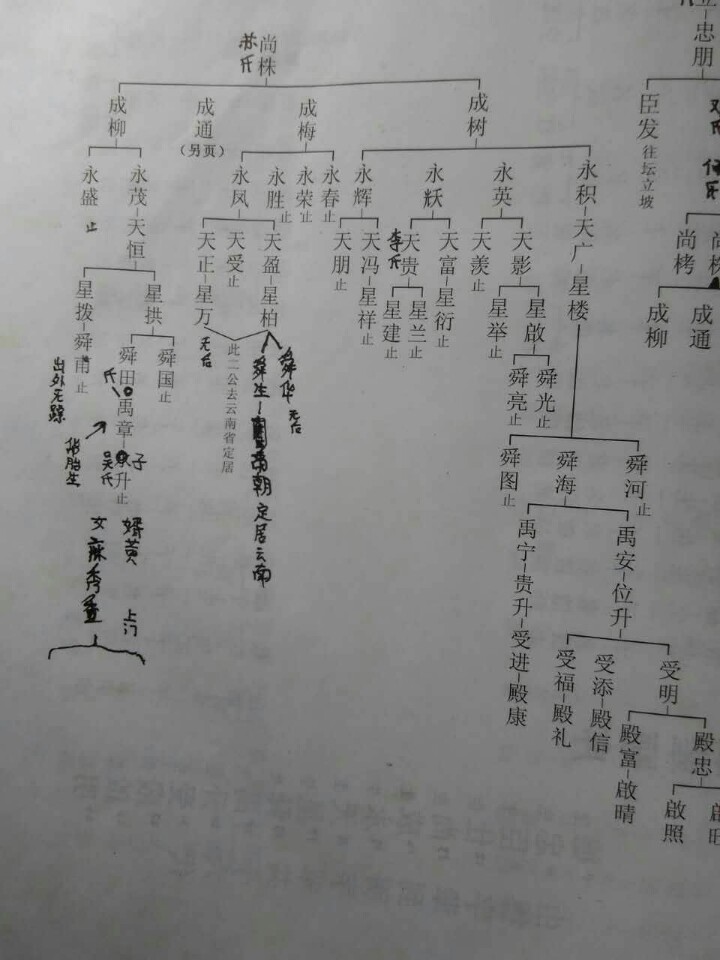 忠朋
苏氏
尚株
成柳
成通
（另页）
成梅
成树
臣发
往坛立坡
永盛
止
永茂
天恒
永凤
永胜
止
永荣
止
永春
止
永辉
永妖
永英
永积
天广
星楼
天正
星万
无后
天受
止
天盈
星柏
天朋
止
天冯
星祥
止
李氏
天贵
天富
星衍
止
天羡
止
天影
尚栲
成柳
成通
星拨
舜甫
止
出外无踪
星拱
舜田
氏
禹章
舜国
止
此二公去云南省定居
舜生
朝定居云南
舜华
无后
星建
止
星兰
止
星举
止
星啟
舜亮
止
舜光
止
华胎生
吴氏
子
升
止
女
秀
婿黄
上门
舜图
止
舜海
舜河
止
禹宁
贵升
受进
殿康
禹安
位升
受福
殿礼
受添
殿信
受明
殿富
啟晴
殿忠
啟照